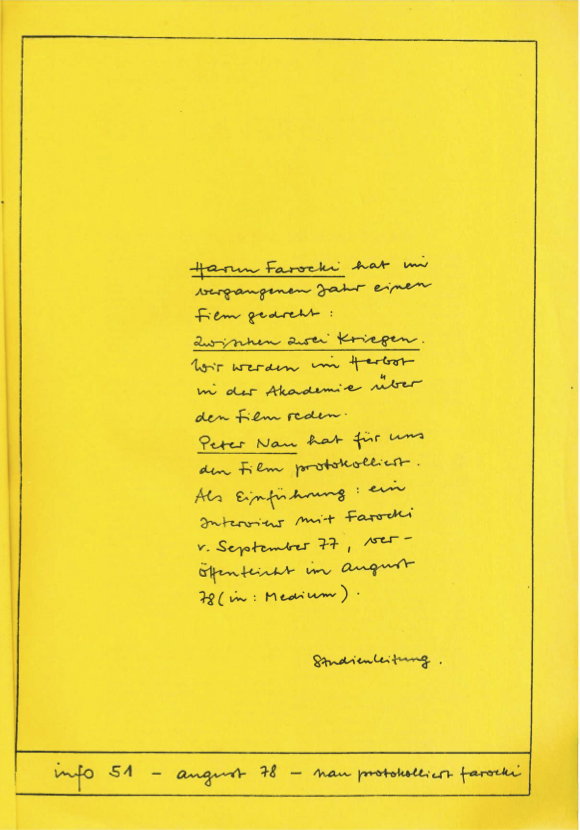 Harun Farocki hat im
vergangenen Jahr einen
Film gedreht :
Zwischen zwei Kriegen.
Wir werden im Herbst
in der Akademie über
den Film reden.
Peter Nau hat für uns
den Film protokolliert.
Als Einführung : ein
Interview mit Farocki
v. September 77, ver-
öffentlicht im August
78 (in : Medium).
Studienleitung.
info 51 – august 78 – nau protokolliert farocki